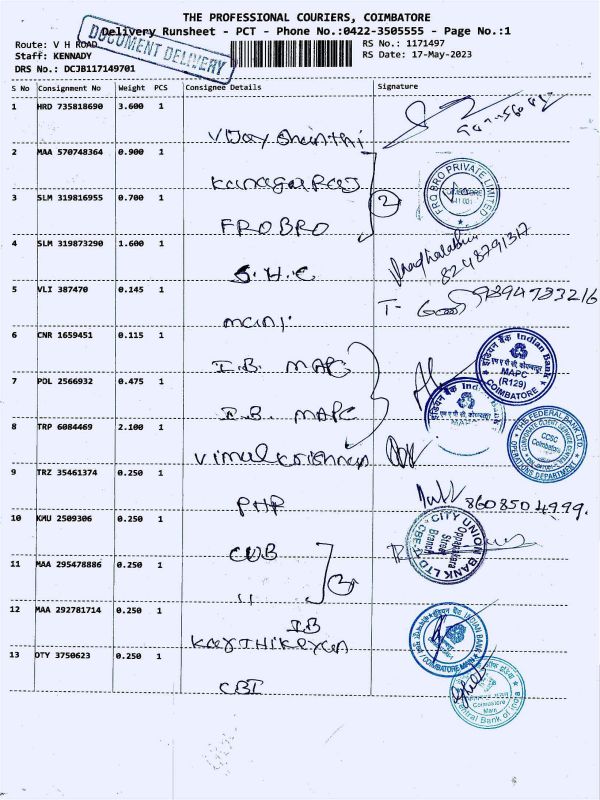 THE PROFESSIONAL COURIERS, COIMBATORE
Delivery Runsheet - PCT - Phone No.:0422-3505555 - Page No.:1
Route: V H ROAD
RS No.: 1171497
Staff: KENNADY
RS Date: 17-May-2023
DRS No.: DCJB117149701
DOCUMENT DELIVERY
S No Consignment No Weight PCS Consignee Details Signature
1 HRD 735818690 3.600 1
Vijay Shanthi
2 MAA 570748364 0.900 1
Kanagaraj
3 SLM 319816955 0.700 1
FRO BRO
2
FRO BRO PRIVATE LIMITED
4 SLM 319873290 1.600 1
S.H.C
8248791317
5 VLI 387470 0.145 1
mani
T-
9894783216
6 CNR 1659451 0.115 1
I.B. MAPC
इंडियन बैंक Indian Bank
MAPC
(R129)
COIMBATORE
7 POL 2566932 0.475 1
I.B. MAPC
इंडियन बैंक
8 TRP 6084469 2.100 1
Vimal Krishnan
THE FEDERAL BANK LTD.
CCSC
Coimbatore
OPERATIONS DEPARTMENT
9 TRZ 35461374 0.250 1
PHP
8608504999.
10 KMU 2509306 0.250 1
CUB
CITY UNION BANK LTD
Oppanakara
Street
Branch
11 MAA 295478886 0.250 1
,,
2
12 MAA 292781714 0.250 1
IB
Karthikeyan
इंडियन बैंक INDIAN BANK
COIMBATORE MAIN
13 DTY 3750623 0.250 1
CBI
Coimbatore
Main
Central Bank of India